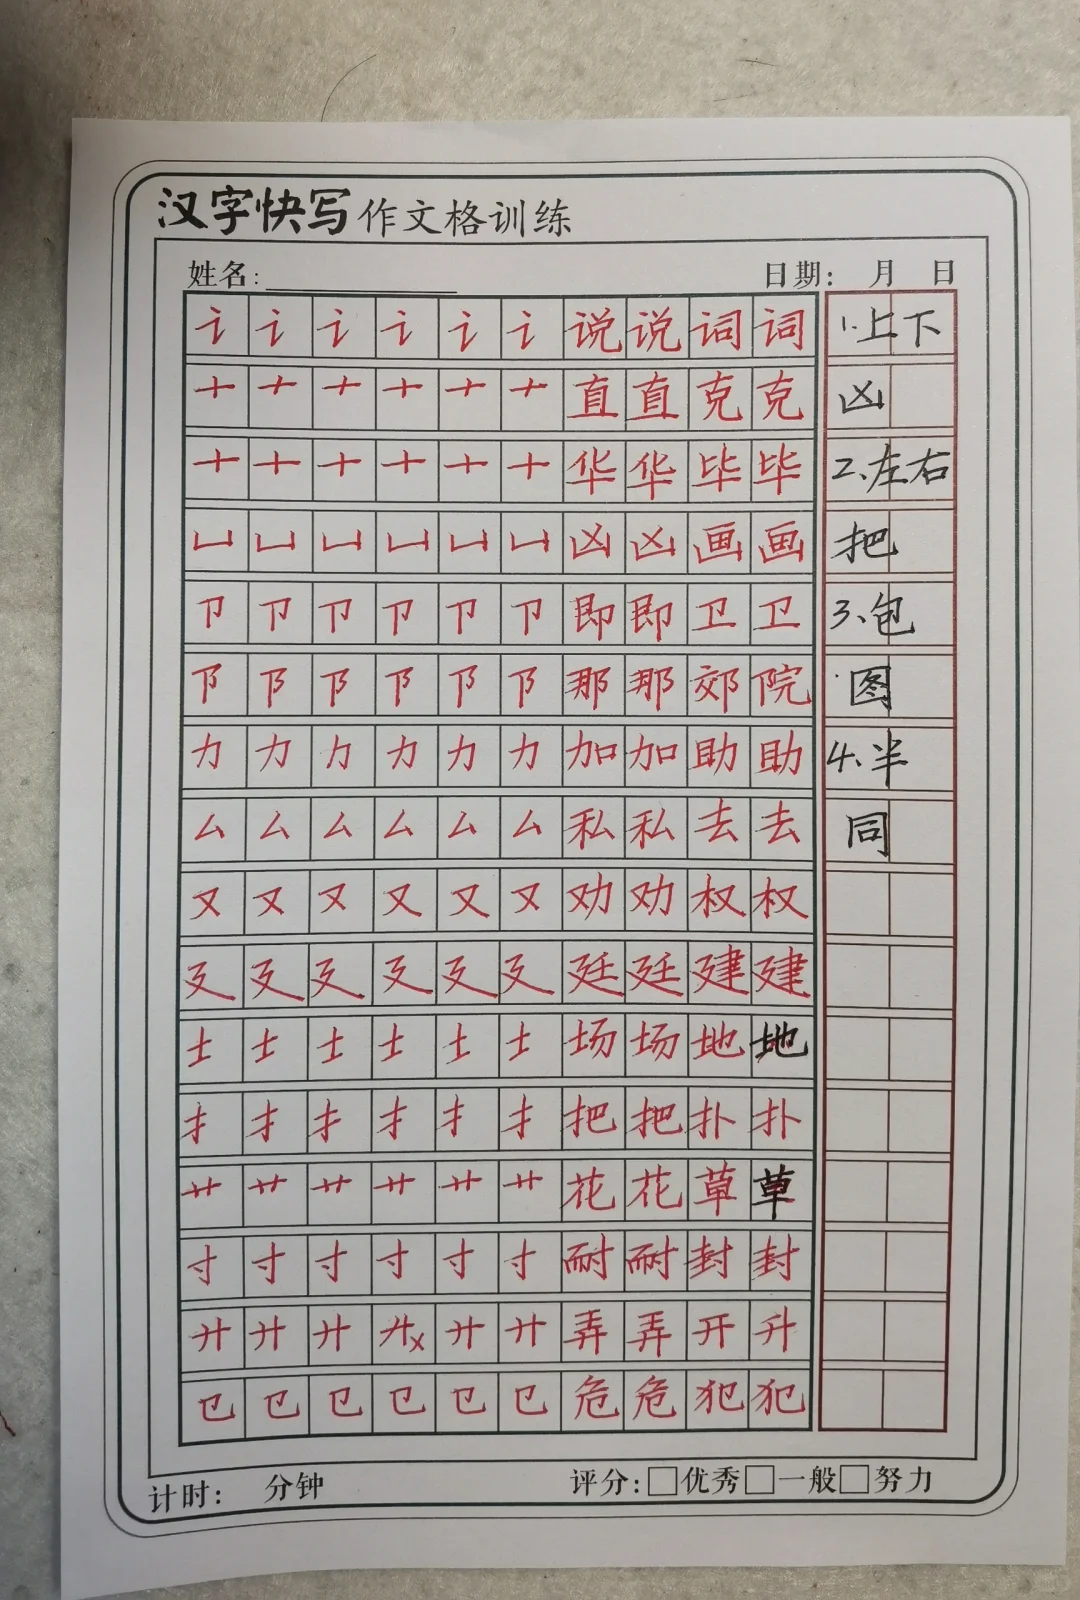 汉字快写作文格训练
姓名: 日期: 月 日
讠 讠 讠 讠 讠 讠 说 说 词 词 1.上下
十 十 十 十 十 十 直 直 克 克 凶
十 十 十 十 十 十 华 华 毕 毕 2、左右
凵 凵 凵 凵 凵 凵 凶 凶 画 画 把
卩 卩 卩 卩 卩 卩 即 即 卫 卫 3、包
阝 阝 阝 阝 阝 阝 那 那 郊 院 图
力 力 力 力 力 力 加 加 助 助 4、半
厶 厶 厶 厶 厶 厶 私 私 去 去 同
又 又 又 又 又 又 劝 劝 权 权
廴 廴 廴 廴 廴 廴 廷 廷 建 建
土 土 土 土 土 土 场 场 地 地
扌 扌 扌 扌 扌 扌 把 把 扑 扑
艹 艹 艹 艹 艹 艹 花 花 草 草
寸 寸 寸 寸 寸 寸 耐 耐 封 封
廾 廾 廾 廾x 廾 廾 弄 弄 开 升
㔾 㔾 㔾 㔾 㔾 㔾 危 危 犯 犯
计时: 分钟 评分:□优秀□一般□努力